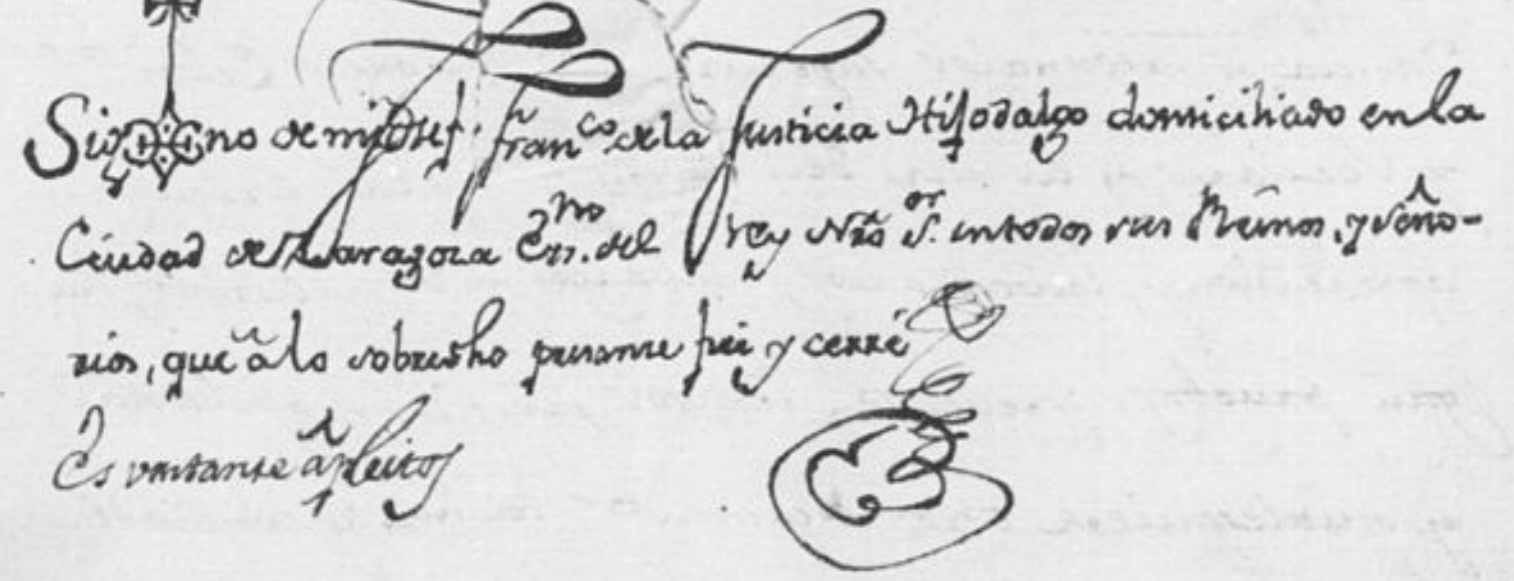 Sig no de mi Josef Fran.co de la Justicia Hijodalgo domiciliado en la
Ciudad de Zaragoza Es.no del Rey Nro S.or en todos sus Reinos, y Seño-
rios, que a lo sobredho presente fui y cerré
Es vastante a pleitos